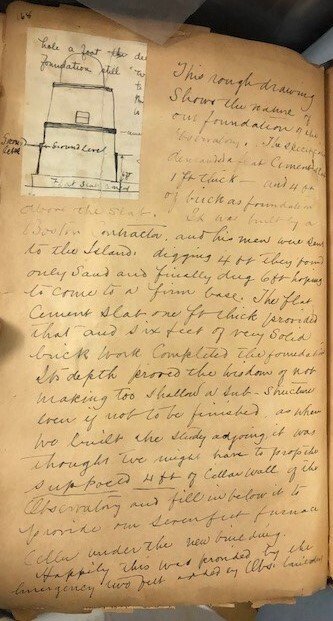 68
hole a foot the de
foundation still
Ground Level
Ground
Level
4 ft
Flat Slab Cement
This rough drawing
Shows the nature of
our foundation to the
Observatory. The
demanded a flat Cement
1 ft thick — and 4 ft
of brick as foundation
above the slat.
It was built by a
Boston contractor, and his men were sent
to the Island. digging 4 ft they found
only Sand and finally dug 6 ft hoping
to come to a firm base. The flat
Cement slat one ft thick provided
that and six feet of very Solid
brick work Completed the foundation
Its depth proved the wisdom of not
making too Shallow a Sub-Structure
even if not to be finished. as when
we built the study adjoing it was
thought we might have to
supposed 4 ft of Cellar Wall of the
Observatory and fill in below it to
provide our Seven feet furnace
Cellar under the new building.
Happily this was provided by the
emergency two feet added by Obs. builders